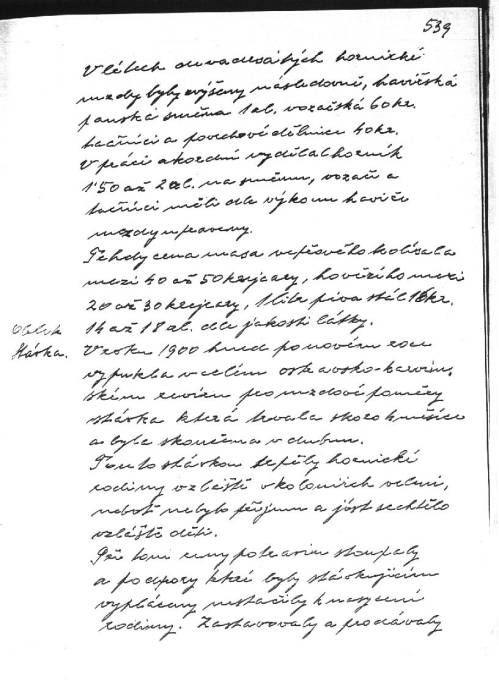 539
V létech devadesátých hornické
mzdy byly zvýšeny následovně, havířská
panská směna 1 zl. vozačská 60 kr.
tačníci a povrchové dělnice 40 kr.
V práci akordní vydělal horník
1·50 až 2 zl. na směnu, vozači a
tačníci měli dle výkonu havíře
mzdy upraveny.
Tehdy cena masa vepřového kolísala
mezi 40 až 50 krejcary, hovězího mezi
20 až 30 krejcary, 1 litr piva stál 16 kr.
Oblek 14 až 18 zl. dle jakosti látky.
Stávka. V roku 1900 hned po novém roce
vypukla v celém ostravsko-karvin-
ském revíru pro mzdové poměry
stávka která trvala skoro
a byla skončena v dubnu.
Touto stávkou trpěly hornické
rodiny vzláště v koloniích velmi,
neboť nebylo příjmu a jíst se chtělo
vzláště děti.
Při tom ceny potravin stoupaly
a podpory kteé byly stávkujícím
vypláceny nestačily k nasycení
rodiny. Zastavovaly a prodávaly